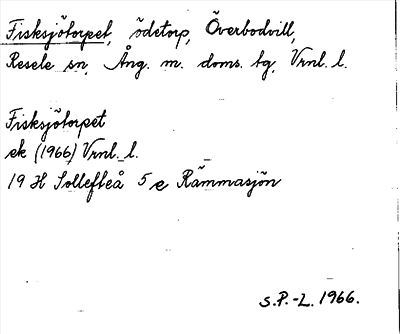 Fisksjötorpet, ödetorp, Överbodvill,
Resele sn, Ång. m. doms. tg, Vrnl. l.
Fisksjötorpet
ek (1966) Vrnl. l.
19 H Sollefteå 5 e Rämmasjön
S.P.-L. 1966.